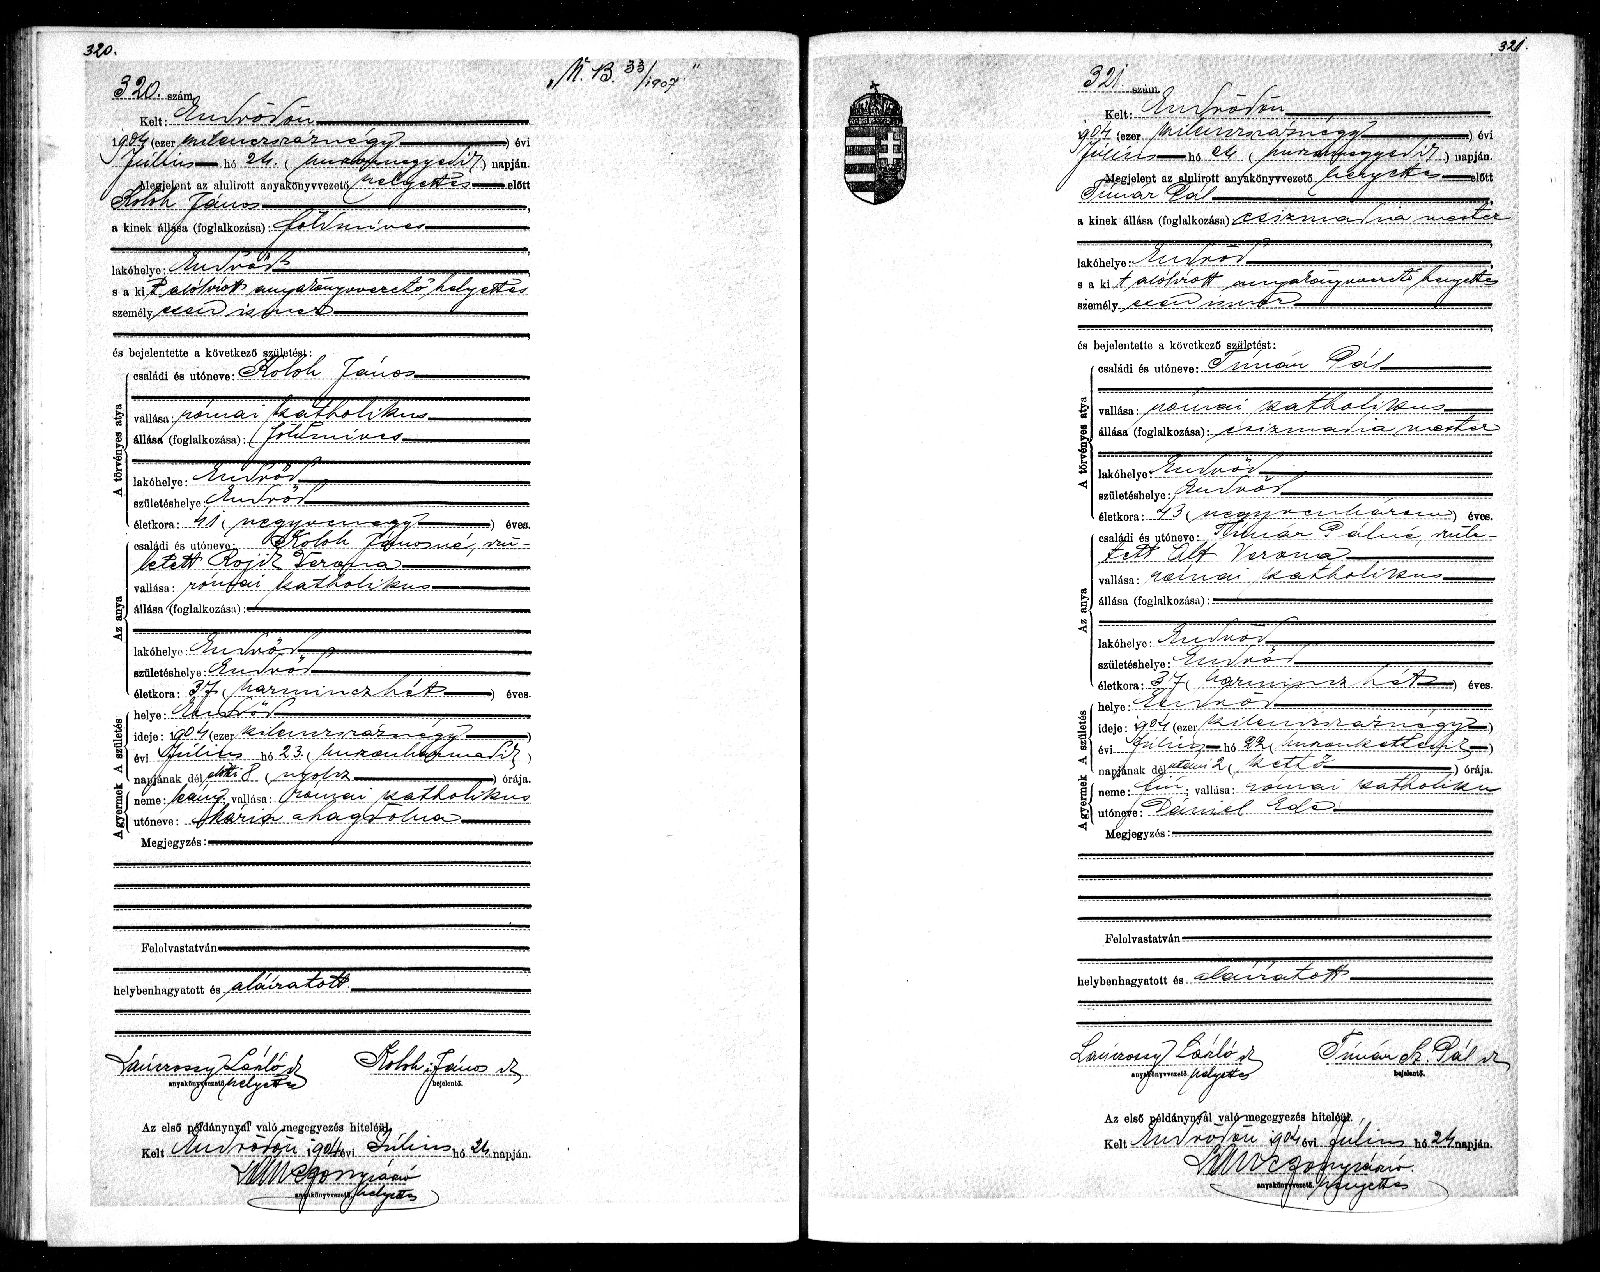 320.
„N. B. 33/1907"
320. szám.
Kelt: Endrődön
1904 (ezer kilenczszáznégy) évi
Július hó 24. (huszonnegyedik) napján.
Megjelent az alulirott anyakönyvvezető helyettes előtt
Koloh János,
a kinek állása (foglalkozása): földmíves
lakóhelye: Endrőd,
s a kit alólírott anyakönyvvezető helyettes
személyesen ismer
és bejelentette a következő születést:
A törvényes atya
családi és utóneve: Koloh János
vallása: római katholikus
állása (foglalkozása): földmíves
lakóhelye: Endrőd
születéshelye: Endrőd
életkora: 41 (negyvenegy) éves.
Az anya
családi és utóneve: Koloh Jánosné, szü-
letett Rojik Verona
vallása: római katholikus
állása (foglalkozása):
lakóhelye: Endrőd
születéshelye: Endrőd
életkora: 37 (harminczhét) éves.
A születés
helye: Endrőd
ideje: 1904 (ezer kilenczszáznégy)
évi Július hó 23. (huszonharmadik)
napjának dél előtti 8 (nyolcz) órája.
A gyermek
neme: leány; vallása: római katholikus
utóneve: Mária Magdolna
Megjegyzés:
Felolvastatván
helybenhagyatott és aláíratott.
László h
anyakönyvvezető helyettes
Koloh János
bejelentő.
Az első példánynyal való megegyezés hiteléül.
Kelt Endrődön 1904 évi Július hó 24 napján.
anyakönyvvezető helyettes
321.
321. szám.
Kelt: Endrődön
1904 (ezer kilenczszáznégy) évi
Július hó 24 (huszonnegyedik) napján.
Megjelent az alulirott anyakönyvvezető helyettes előtt
Tímár Pál,
a kinek állása (foglalkozása): csizmadia mester
lakóhelye: Endrőd,
s a kit alólírott anyakönyvvezető helyettes
személyesen ismer
és bejelentette a következő születést:
A törvényes atya
családi és utóneve: Tímár Pál
vallása: római katholikus
állása (foglalkozása): csizmadia mester
lakóhelye: Endrőd
születéshelye: Endrőd
életkora: 43 (negyvenhárom) éves.
Az anya
családi és utóneve: Tímár Pálné, szüle-
tett Alt Verona
vallása: római katholikus
állása (foglalkozása):
lakóhelye: Endrőd
születéshelye: Endrőd
életkora: 37 (harmincz hét) éves.
A születés
helye: Endrőd
ideje: 1904 (ezer kilenczszáznégy)
évi Július hó 22 (huszonkettedik)
napjának dél utáni 2 (kettő) órája.
A gyermek
neme: fiú; vallása: római katholikus
utóneve: Dániel Ede
Megjegyzés:
Felolvastatván
helybenhagyatott és aláíratott
László h
anyakönyvvezető helyettes
Tímár Sz. Pál
bejelentő.
Az első példánynyal való megegyezés hiteléül.
Kelt Endrődön 1904 évi Július hó 24 napján.
anyakönyvvezető helyettes